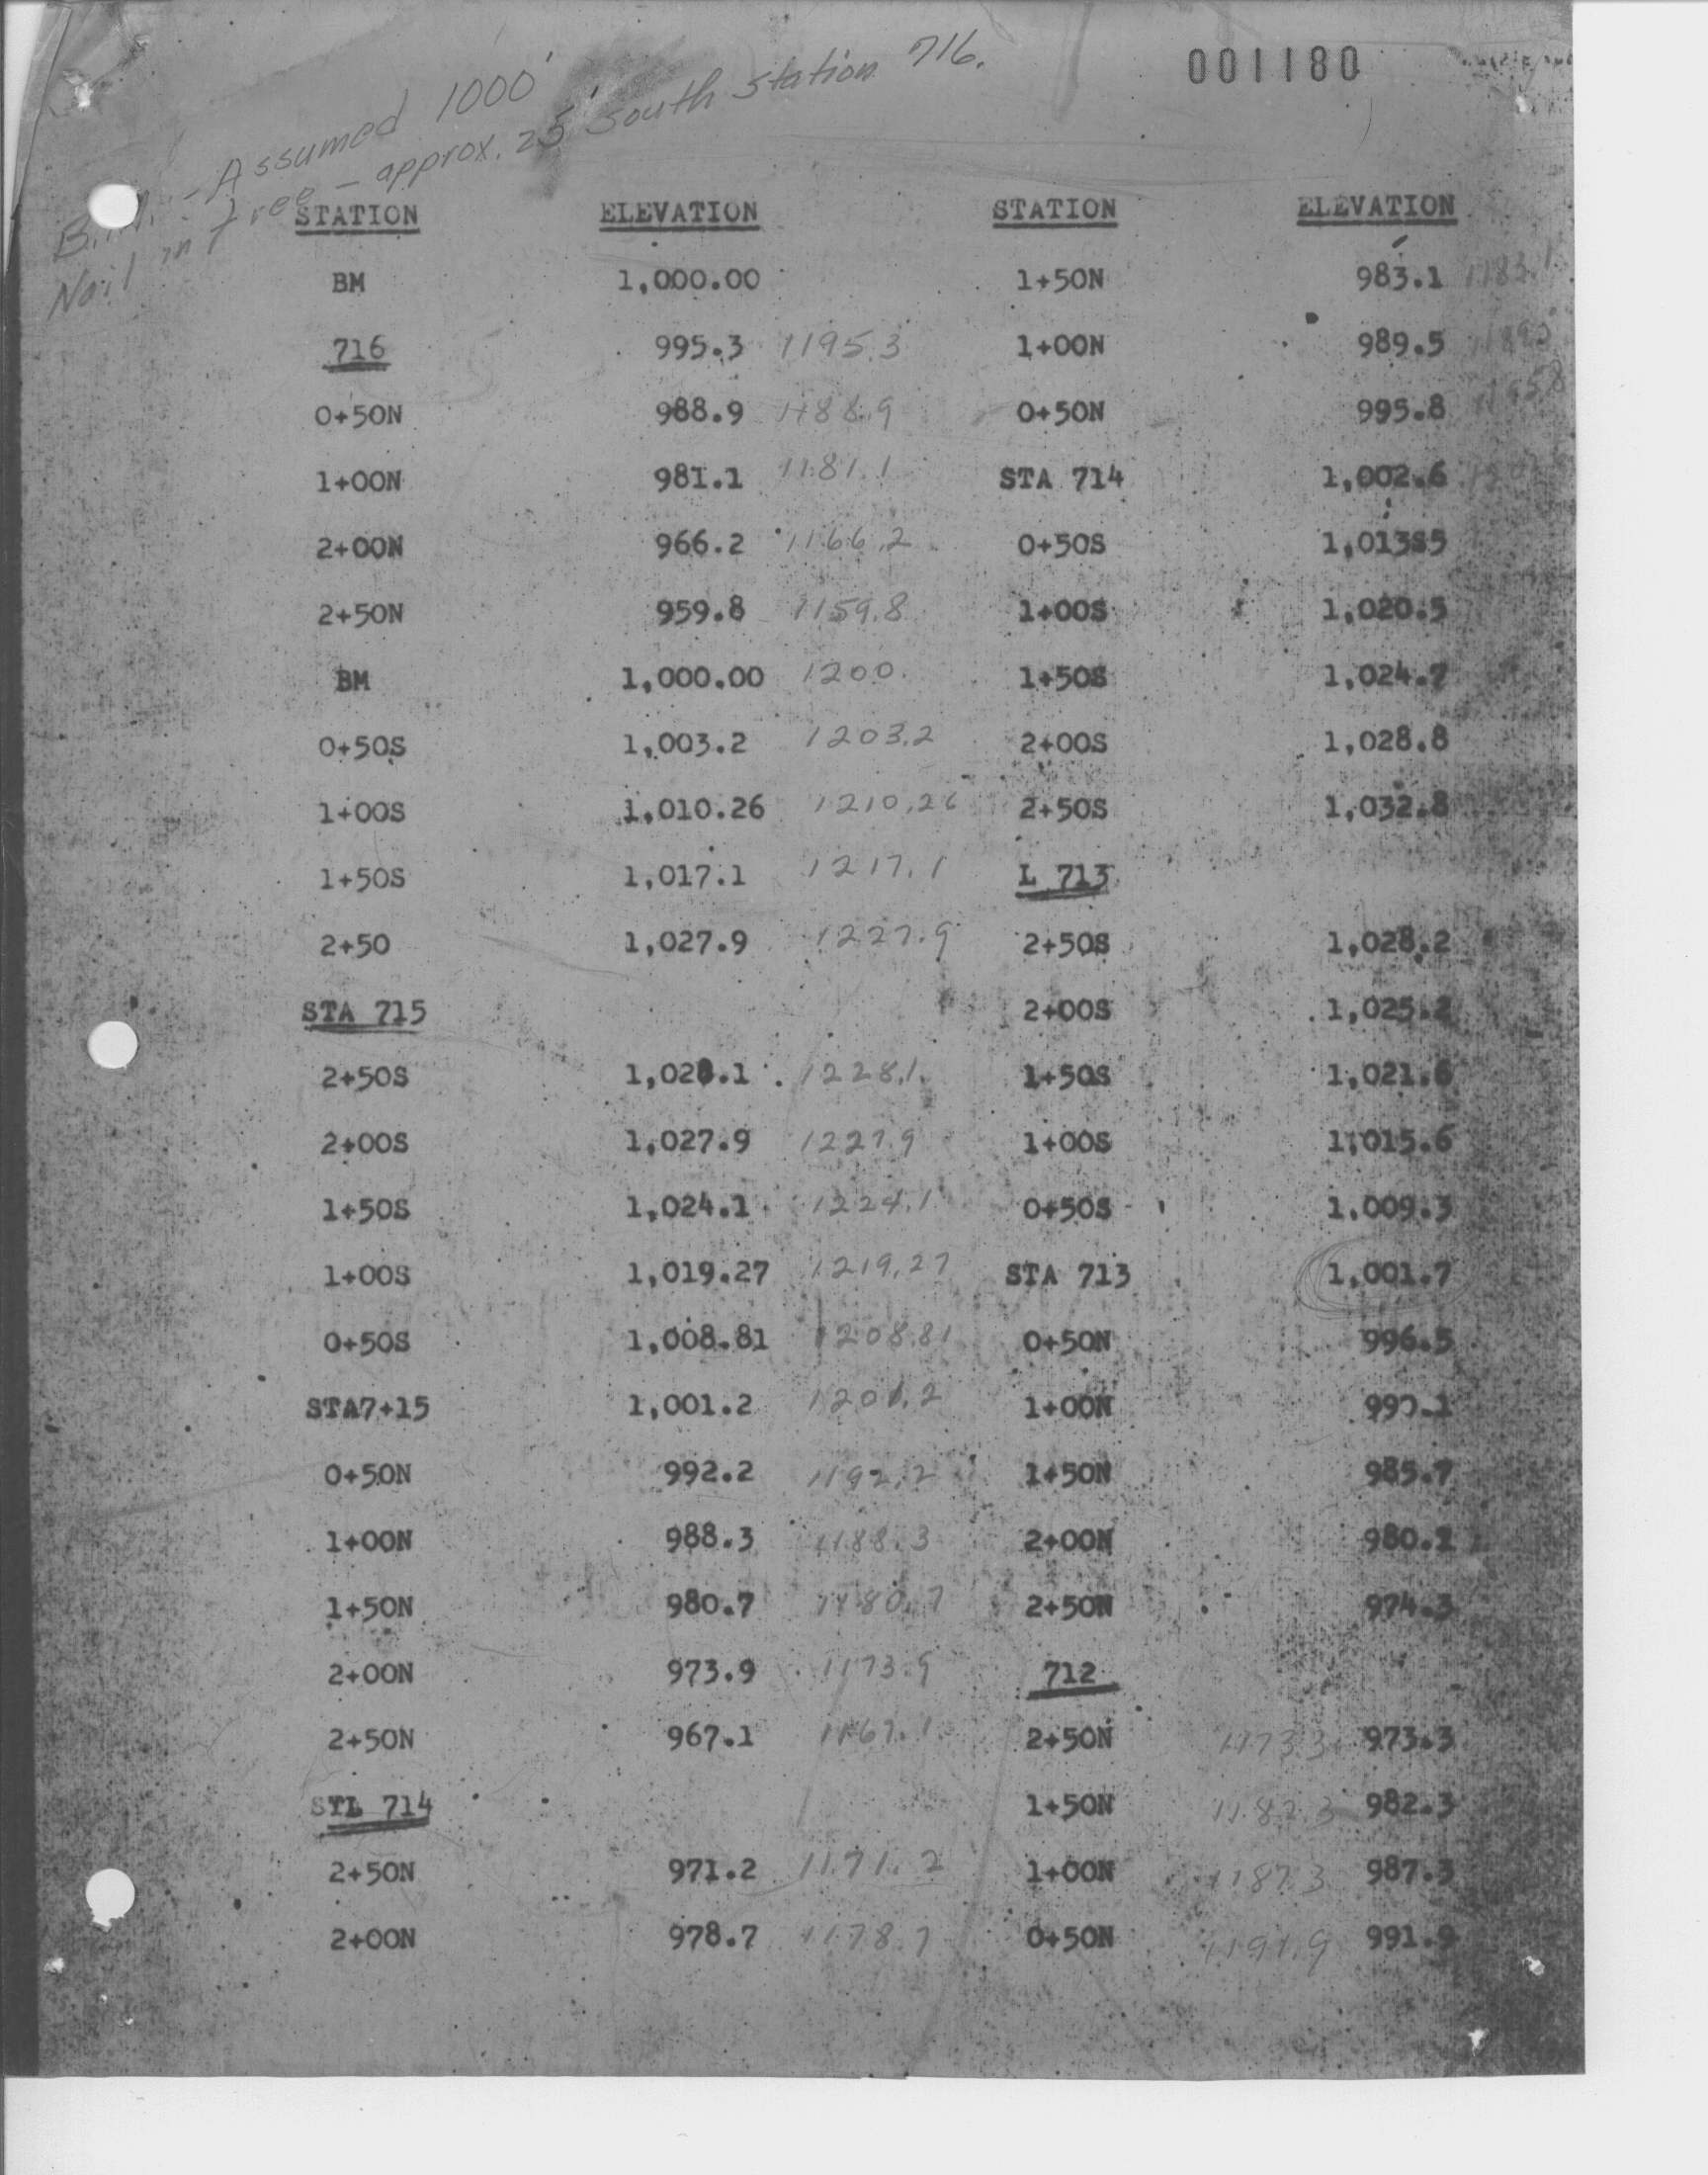 001180
B.M. - Assumed 1000'
Nail in tree - approx. 25' south station 716.
STATION ELEVATION STATION ELEVATION
BM 1,000.00 1+50N 983.1 1183.1
716 995.3 1195.3 1+00N 989.5
0+50N 988.9 1188.9 0+50N 995.8 1195.8
1+00N 981.1 1181.1 STA 714 1,002.6
2+00N 966.2 1166.2 0+50S 1,013S5
2+50N 959.8 1159.8 1+00S 1,020.5
BM 1,000.00 1200. 1+50S 1,024.7
0+50S 1,003.2 1203.2 2+00S 1,028.8
1+00S 1,010.26 1210.26 2+50S 1,032.8
1+50S 1,017.1 1217.1 L 713
2+50 1,027.9 1227.9 2+50S 1,028.2
STA 715 2+00S 1,025.2
2+50S 1,028.1 1228.1 1+50S 1,021.6
2+00S 1,027.9 1227.9 1+00S 1,015.6
1+50S 1,024.1 1224.1 0+50S 1.009.3
1+00S 1,019.27 1219.27 STA 713 1,001.7
0+50S 1,008.81 1208.81 0+50N 996.5
STA7+15 1,001.2 1201.2 1+00N 990.1
0+50N 992.2 1192.2 1+50N 985.7
1+00N 988.3 1188.3 2+00N
1+50N 980.7 1180.7 2+50N 974.3
2+00N 973.9 1173.9 712
2+50N 967.1 1167.1 2+50N 1173.3 973.3
STL 714 1+50N 1182.3 982.3
2+50N 971.2 1171.2 1+00N 1187.3 987.3
2+00N 978.7 1178.7 0+50N 1191.9 991.9